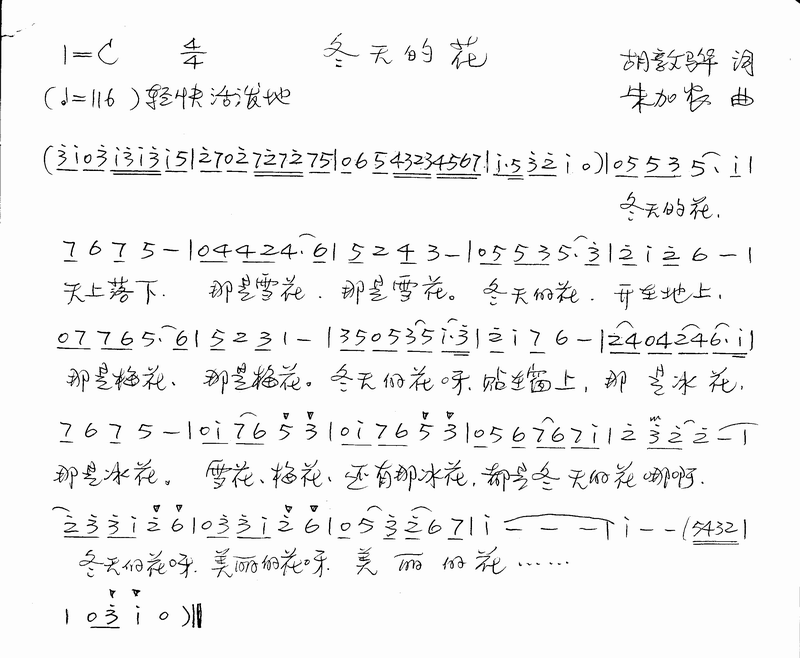 1=C 4/4 冬天的花 胡敦骅 词
(♩=116) 轻快活泼地 朱加农 曲
(3̇ i 0 3̇ i 3̇ i 3̇ i 5 | 2̇ 7 0 2̇ 7 2̇ 7 2̇ 7 5 | 0 6 5 4 3 2 3 4 5 6 7 | i· 5 3̇ 2̇ i 0) | 0 5 5 3 5· i |
冬天的花,
7 6 7 5 – | 0 4 4 2 4· 6 | 5 2 4 3 – | 0 5 5 3 5· 3̇ | 2̇ i 2̇ 6 – |
天上落下. 那是雪花. 那是雪花。冬天的花. 开在地上,
0 7 7 6 5· 6 | 5 2 3 1 – | 3 5 0 5 3 5 i· 3̇ | 2̇ i 7 6 – | 2 4 0 4 2 4 6· i |
那是梅花、那是梅花。冬天的花呀.贴在窗上, 那是冰花,
7 6 7 5 – | 0 i 7 6 5 3 | 0 i 7 6 5 3 | 0 5 6 7 6 7 i | 2̇ 3̇ 2̇ 2̇ – |
那是冰花。雪花、梅花、还有那冰花,都是冬天的花哪啊.
2̇ 3̇ 3̇ i 2̇ 6 | 0 3̇ 3̇ i 2̇ 6 | 0 5 3̇ 2̇ 6 7 | i – – – | i – – (5 4 3 2 |
冬天的花呀.美丽的花呀 美丽的花……
1 0 3̇ i 0) ‖